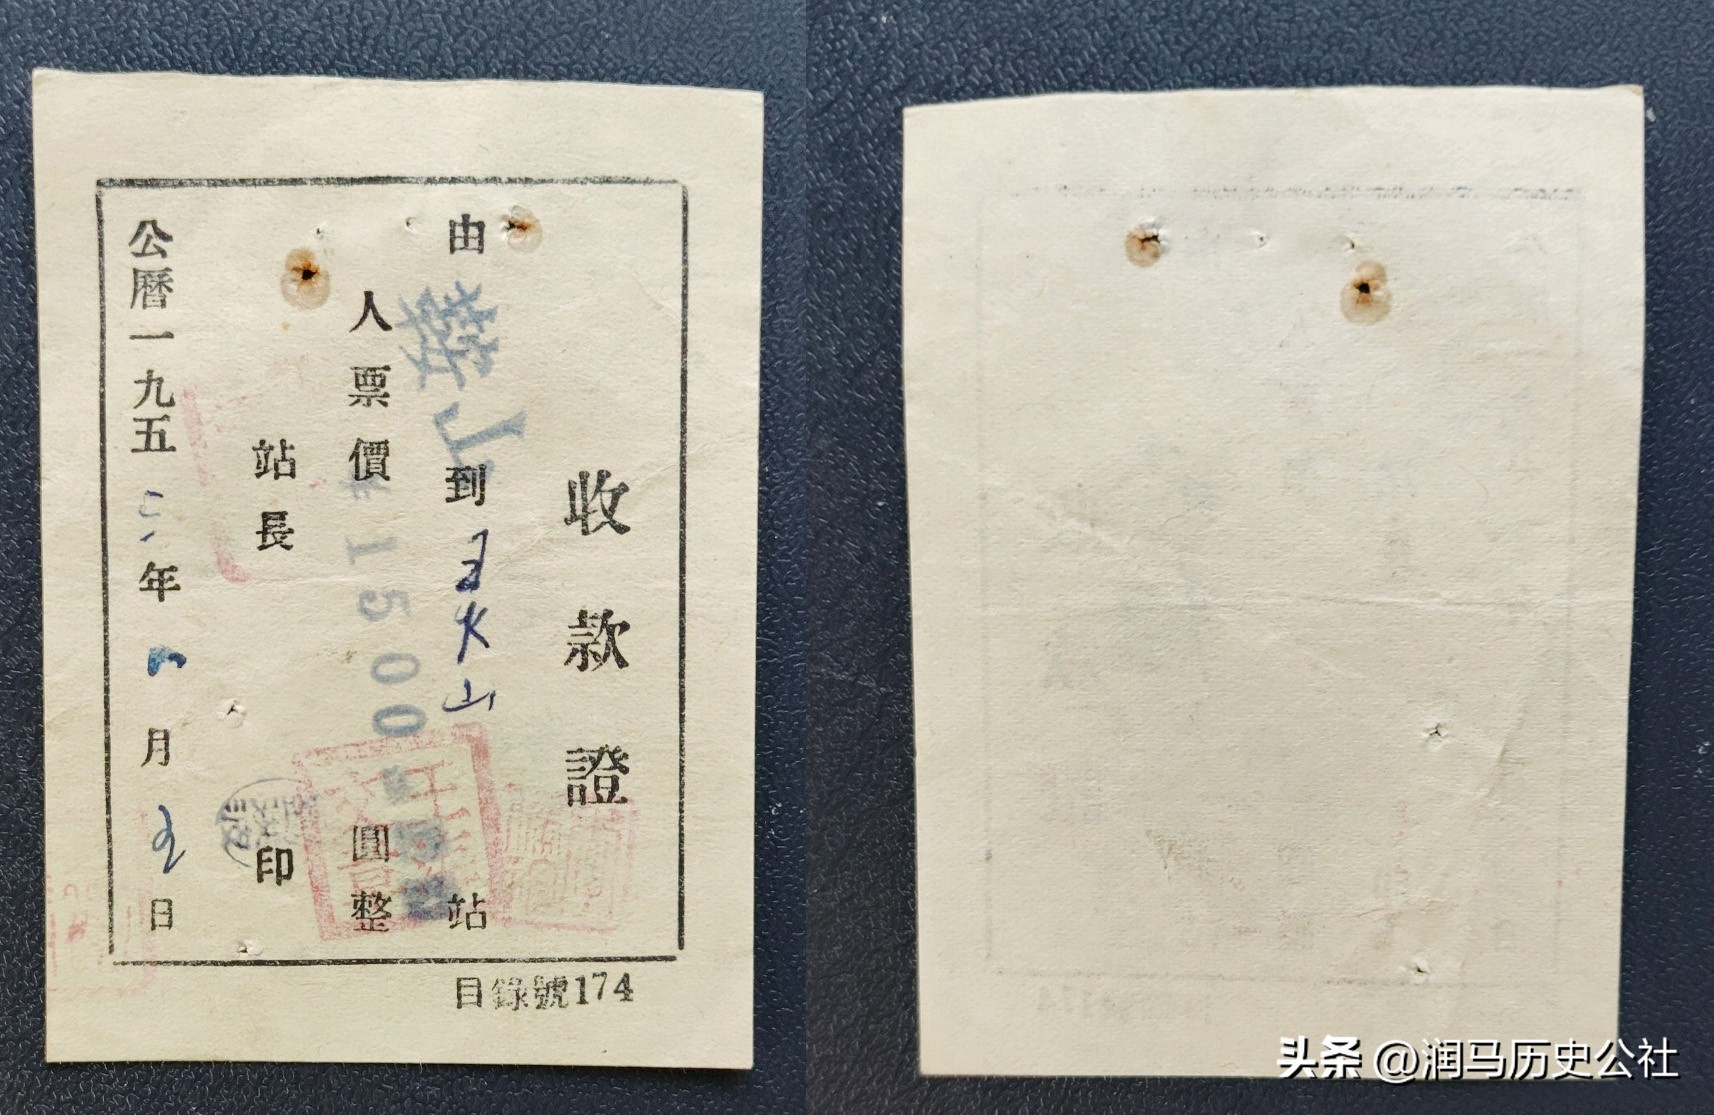 收款證
由 山 到 山 站
人票價 1500 圓整
站長 印
公曆一九五 年 月 日
目錄號174
头条 @润马历史公社